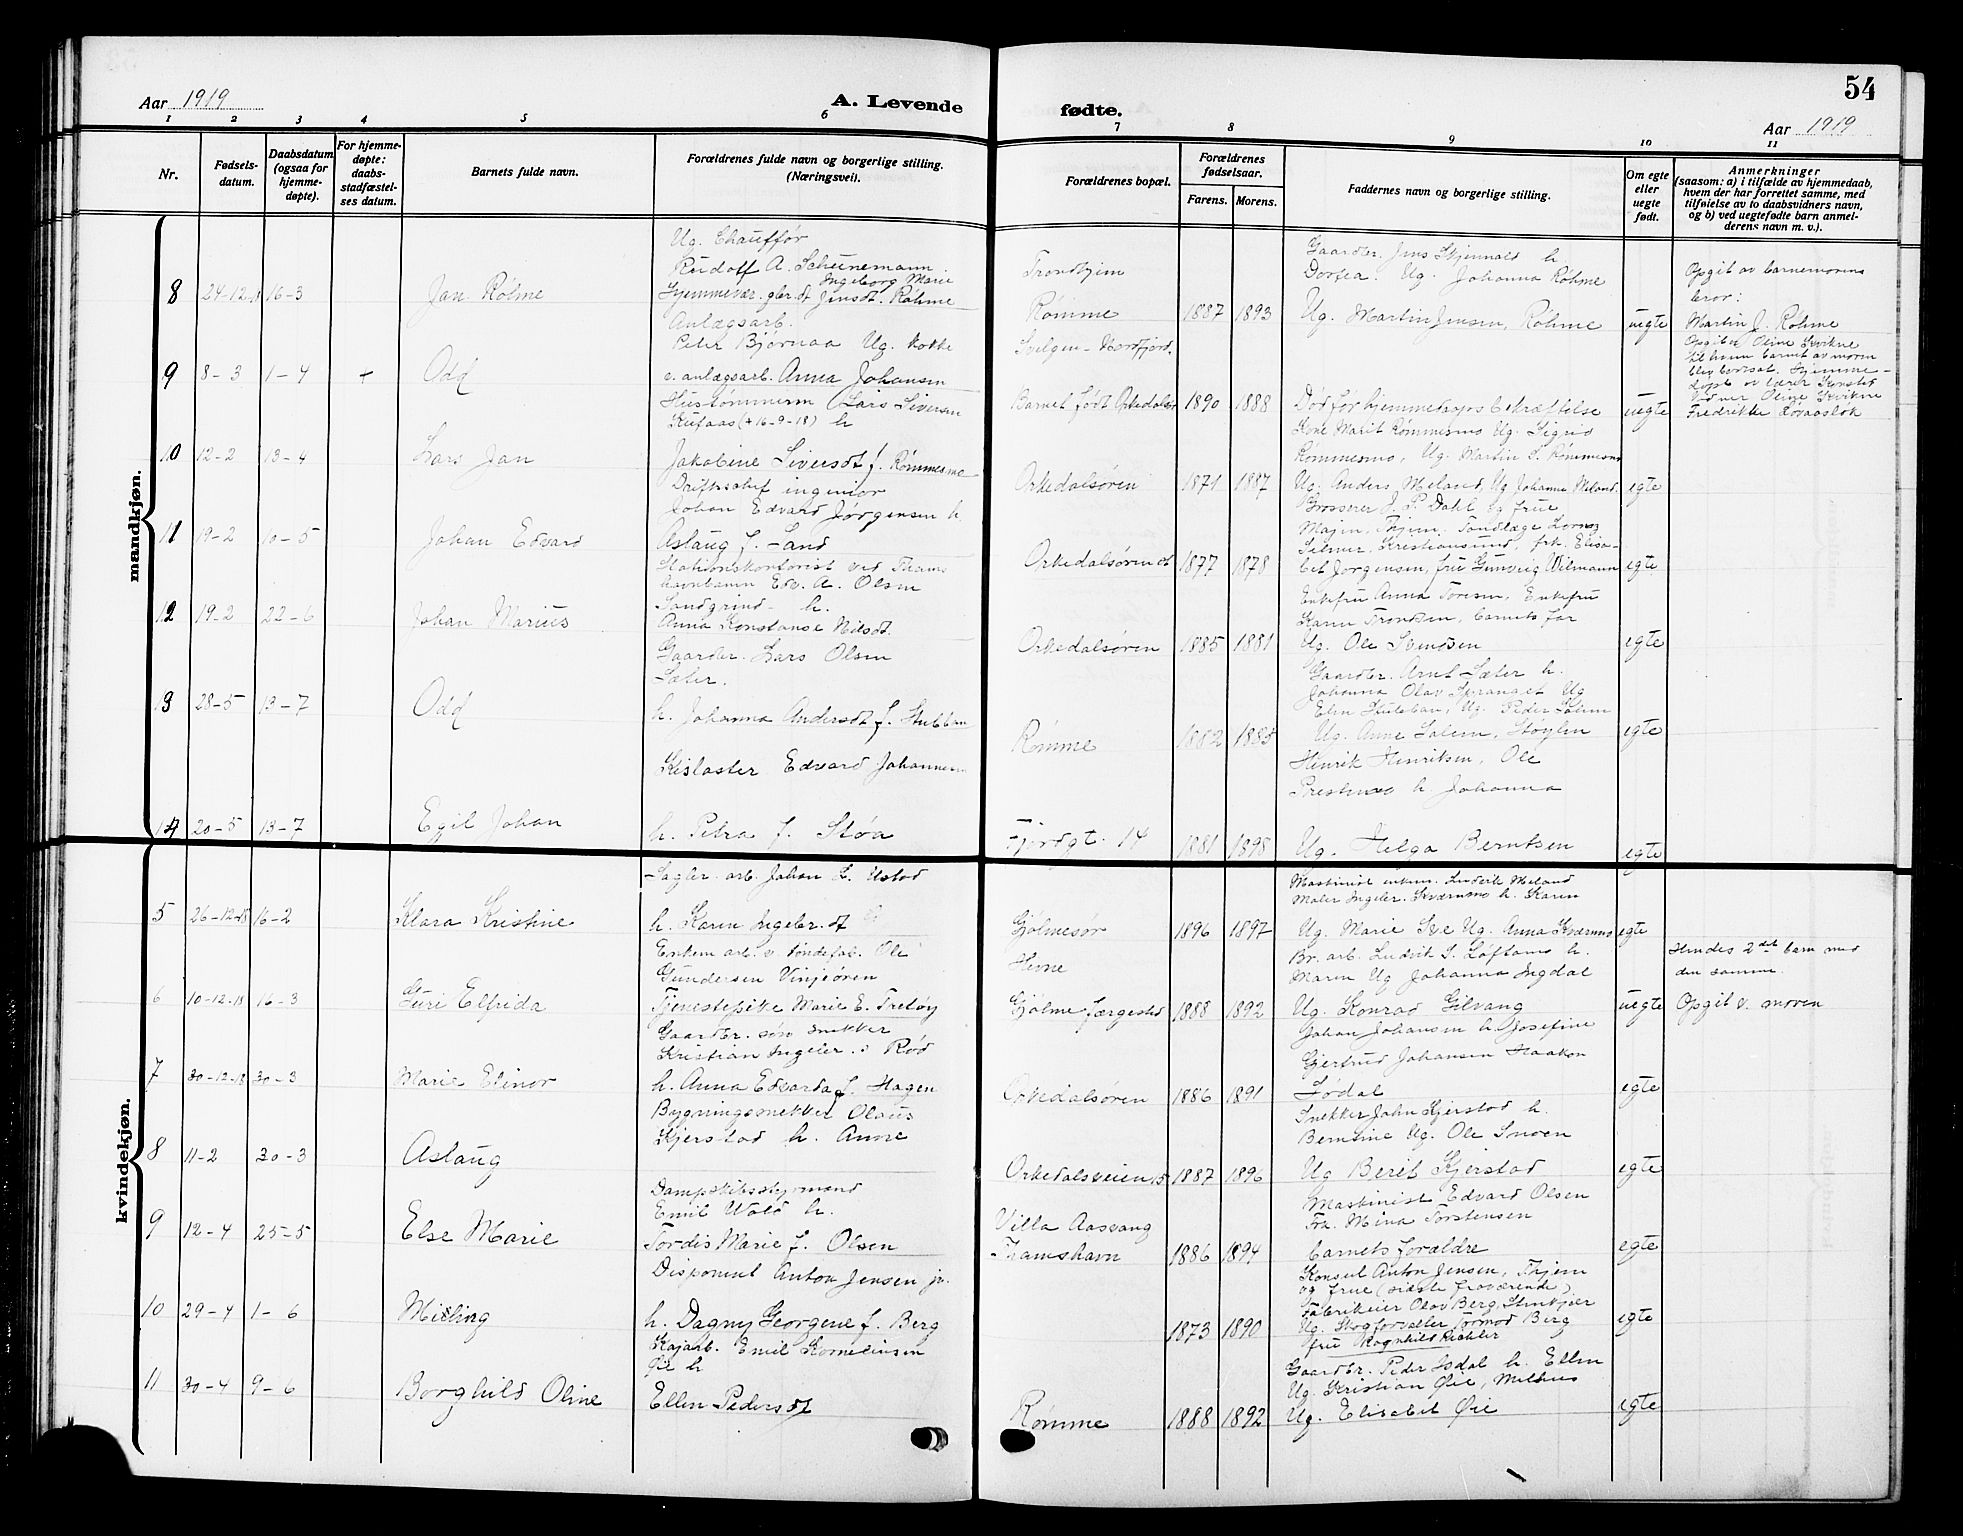 54
Aar 1919
A. Levende
fødte.
Aar 1919
1 2 3 4 5 6 7 8 9 10 11
Nr.
Fødsels-
datum.
Daabsdatum
(ogsaa for
hjemme-
døpte).
For hjemme-
døpte:
daabs-
stadfæstel-
ses datum.
Barnets fulde navn.
Forældrenes fulde navn og borgerlige stilling.
(Næringsvei).
Forældrenes bopæl.
Forældrenes
fødselsaar.
Farens. Morens.
Faddernes navn og borgerlige stilling.
Om egte
eller
uegte
født.
Anmerkninger
(saasom: a) i tilfælde av hjemmedaab,
hvem der har forrettet samme, med
tilføielse av to daabsvidners navn,
og b) ved uegtefødte barn anmel-
derens navn m. v.).
mandkjøn.
8 24-12-18 16-3 Jan Röhme
Ug. Chauffør
Rudolf A. Schünemann
Ingeborg Marie
Hjemmevær. gbr.dt Jensdt. Røhme
Trondhjem
Rømme
1887 1893
Gaardbr. Jens Skjenald h.
Dortea. Ug. Johanna Röhme
Ug. Martin Jensen, Röhme
uegte
Opgit av barnemorens
bror:
Martin J. Röhme
9 8-3 1-4 + Odd
Anlægsarb.
Peter Bjørnaa Ug. kokke
v. anlægsarb. Anna Johansen
Svelgen - Nordfjord.
Barnet født Orkedalen
1890 1888
Død før hjemmedaapens bekræftelse
uegte
Opgit av Oline Kvikne
til hvem barnet av moren
blev bortsat. Hjemme-
døpt av lærer
Vidner Oline Kvikne
Fredrikke
10 12-2 13-4 Lars Jan
Hustømmerm. Lars Siversen
Kufaas (+ 16-9-18) h
Jakobine Siversdt f. Rømmesmo
Orkedalsøren
1871 1887
Kone Marit Rømmesmo Ug. Sigrid
Rømmesmo, Ug. Martin S. Rømmesmo
Ug. Anders Meland, Ug Johanna Meland.
egte
11 19-2 10-5 Johan Edvard
Driftschef ingeniør
Johan Edvard Jørgensen h.
Aslaug f. Sand
Orkedalsøren st
1877 1878
Grosserer J. P. Dahl og frue
Majen, Thjem. Tandlæge Lorens
Silmer, Kristiansund, frk. Elisa-
bet Jørgensen, frue Gunvrig Wilmann
egte
12 19-2 22-6 Johan Marius
Stationskontorist ved Thams-
havnbanen Edv. A. Olsen
Sandgrind- h.
Anna Konstanse Nilsdt.
Orkedalsøren
1885 1881
Enkefru Anna Toresen, Enkefru
Karen Trondsen, barnets far
Ug. Ole Svendsen
egte
13 28-5 13-7 Odd
Gaardbr. Lars Olsen
Sæter.
h. Johanna Andersdt f. Stubban
Rømme
1882 1885
Gaardbr. Arnt Sæter h.
Johanna Olav Ug
Elen Stubban, Ug. Peder Solem
Ug. Anne Solem, Støylen
egte
14 20-5 13-7 Egil Johan
Kislaster Edvard Johannesen
h. Petra f. Støa
Fjordgt. 14
1881 1898
Henrik Henriksen, Ole
Prestmo h. Johanna
Ug. Helga Berntsen
egte
kvindekjøn.
5 26-12-18 16-2 Klara Kristine
Sagbr. arb. Johan L. Ustad
h. Karen Ingebr.dt
Gjølmesør
1896 1897
Maskinist enkem. Ludvik Meland
Maler Ingebr. Kværnmo h. Karen
Ug. Marie Sve Ug. Anna Kværnmo
egte
6 10-12-18 16-3 Guri Elfrida
Enkem. arb. v. tøndefab. Ole
Gundersen Vinjeøren
Tjenestepike Marie E. Tretøy
Hevne
Gjølme færgested
1888 1892
Br. arb. Ludvik S. Løftamo h.
Maren Ug Johanna Ingdal
Ug. Konrad Gilvang
uegte
Hendes 2det barn med
den samme.
Opgit v. moren
7 30-12-18 30-3 Marie Elinor
Gaardbr. søn snekker
Kristian Ingebr. s Rød
h. Anna Edvarda f. Hagen
Orkedalsøren
1886 1891
Johan Johansen h. Josefine
Gjertrud Johansen Haakon
Fødal
egte
8 11-2 30-3 Aslaug
Bygningssnekker Olaus
Kjerstad h. Anne
Orkedalsveien 15
1887 1896
Snekker John Kjerstad h.
Berntine Ug. Ole Snoen
Ug Beret Kjerstad
egte
9 12-4 25-5 Else Marie
Dampskibsstyrmand
Emil Wold h.
Tordis Marie f. Olsen
Villa Aasvang
Thamshavn
1886 1894
Maskinist Edvard Olsen
Frk. Mina Torstensen
barnets forældre
egte
10 29-4 1-6 Meiling
Disponent Anton Jensen jr.
h. Dagny Georgene f. Berg
1873 1890
Konsul Anton Jensen, Thjem
og frue (sidste fraværende)
Fabrikeier Olav Berg, Stenkjer
Ug. Skogforvalter Tormod Berg
frue Ragnhild Richter
egte
11 30-4 9-6 Borghild Oline
Kajarb. Emil Korneliussen
Øie h
Ellen Pedersdt
Rømme
1888 1892
Gaardbr. Peder Isdal h. Ellen
Ug. Kristian Øie, Melhus
Ug. Elisabet Øie
egte